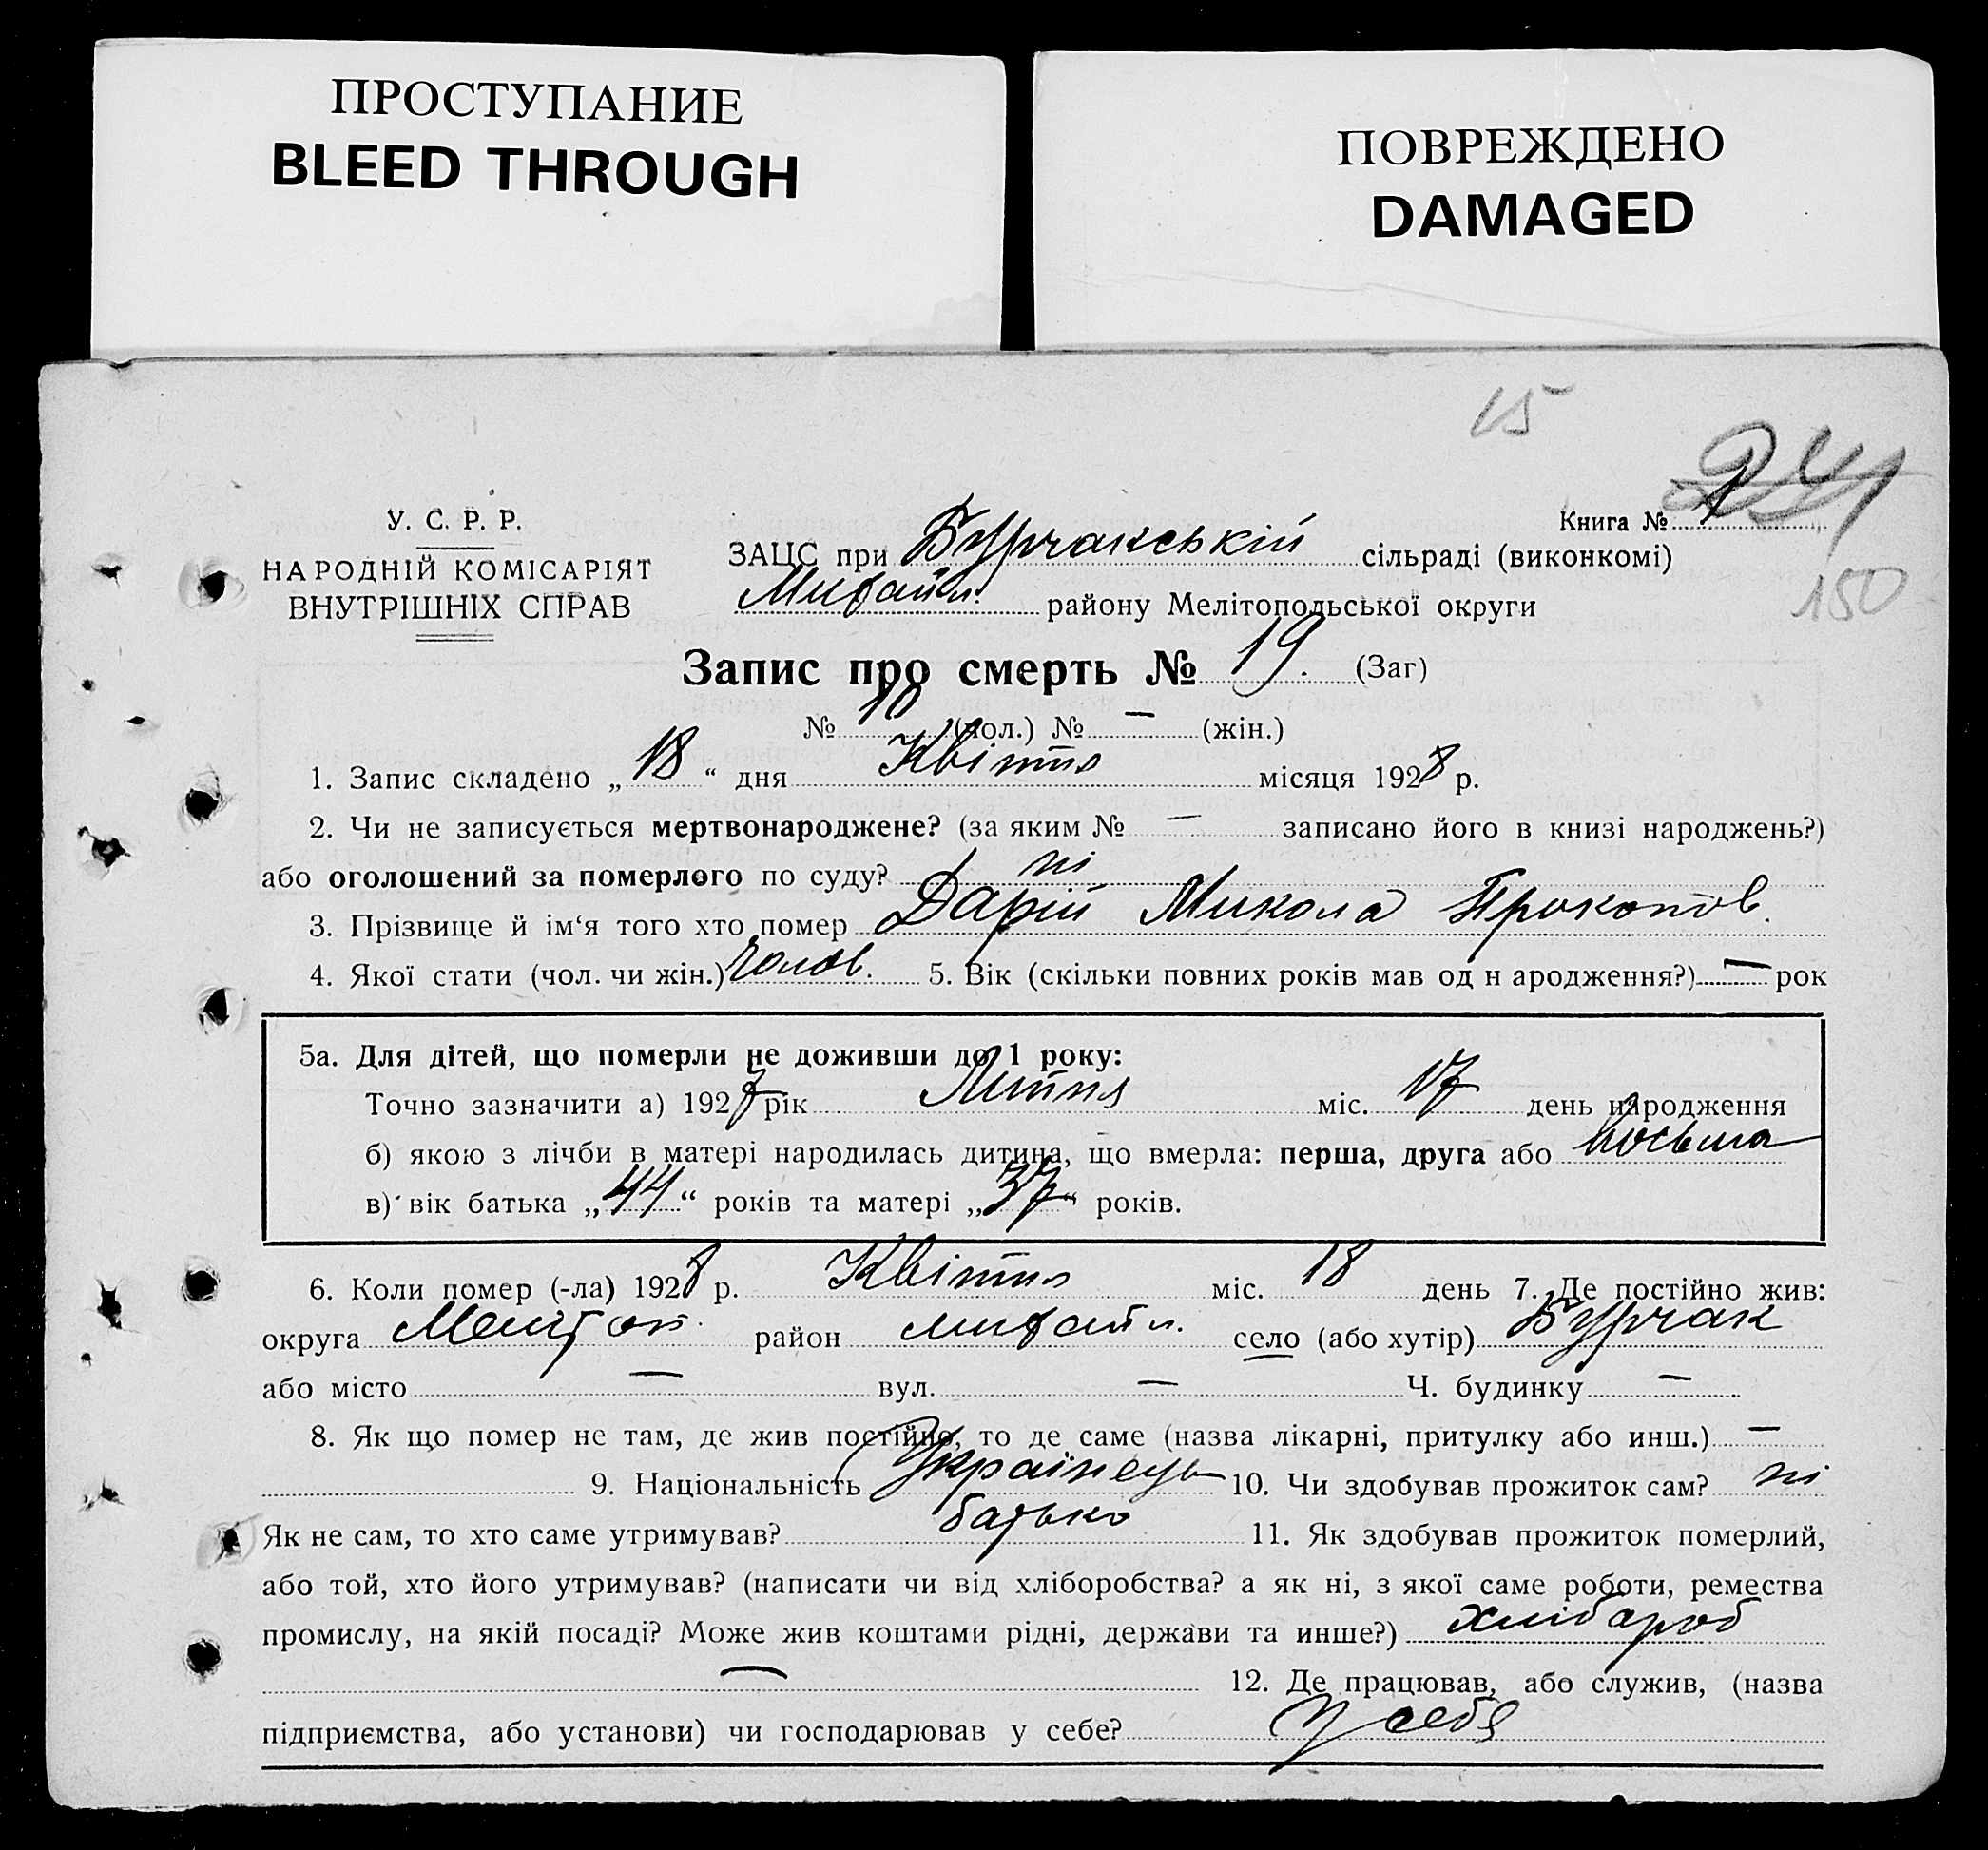 ПРОСТУПАНИЕ
BLEED THROUGH
ПОВРЕЖДЕНО
DAMAGED
15
24
У. С. Р. Р.
НАРОДНІЙ КОМІСАРІЯТ
ВНУТРІШНІХ СПРАВ
Книга № 1
150
ЗАЦС при Бурчакській сільраді (виконкомі)
Михайл. району Мелітопольської округи
Запис про смерть № 19. (Заг)
№ 10 (чол.) № — (жін.)
1. Запис складено „18“ дня Квітня місяця 1928 р.
2. Чи не записується мертвонароджене? (за яким № — записано його в книзі народжень?)
або оголошений за померлого по суду? ні
3. Прізвище й ім‘я того хто помер Дарій Микола Прокопов.
4. Якої стати (чол. чи жін.) чолов. 5. Вік (скільки повних років мав од н ародження?) — рок
5а. Для дітей, що померли не доживши до 1 року:
Точно зазначити а) 1927 рік Липня міс. 17 день народження
б) якою з лічби в матері народилась дитина, що вмерла: перша, друга або восьма
в) вік батька „44“ років та матері „37“ років.
6. Коли помер (-ла) 1928 р. Квітня міс. 18 день 7. Де постійно жив:
округа Меліт оп. район михайл. село (або хутір) Бурчак
або місто — вул. — Ч. будинку —
8. Як що помер не там, де жив постійно, то де саме (назва лікарні, притулку або инш.) —
9. Національність Українець 10. Чи здобував прожиток сам? ні
Як не сам, то хто саме утримував? батько 11. Як здобував прожиток померлий,
або той, хто його утримував? (написати чи від хліборобства? а як ні, з якої саме роботи, ремества
промислу, на якій посаді? Може жив коштами рідні, держави та инше?) хлібароб
— 12. Де працював, або служив, (назва
підприємства, або установи) чи господарював у себе? у себе